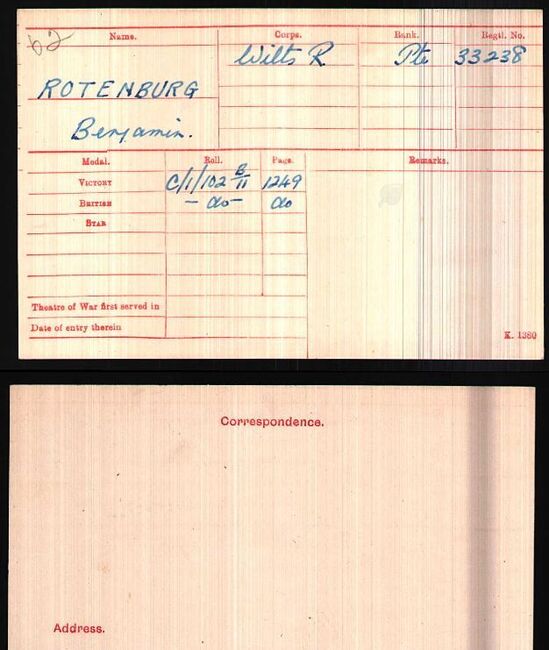 62
Name. Corps. Rank. Regtl. No.
Wilts R Pte 33238
ROTENBURG
Benjamin.
Medal. Roll. Page. Remarks.
VICTORY C/1/102 B/11 1249
BRITISH - do - do
STAR
Theatre of War first served in
Date of entry therein
K. 1380
Correspondence.
Address.